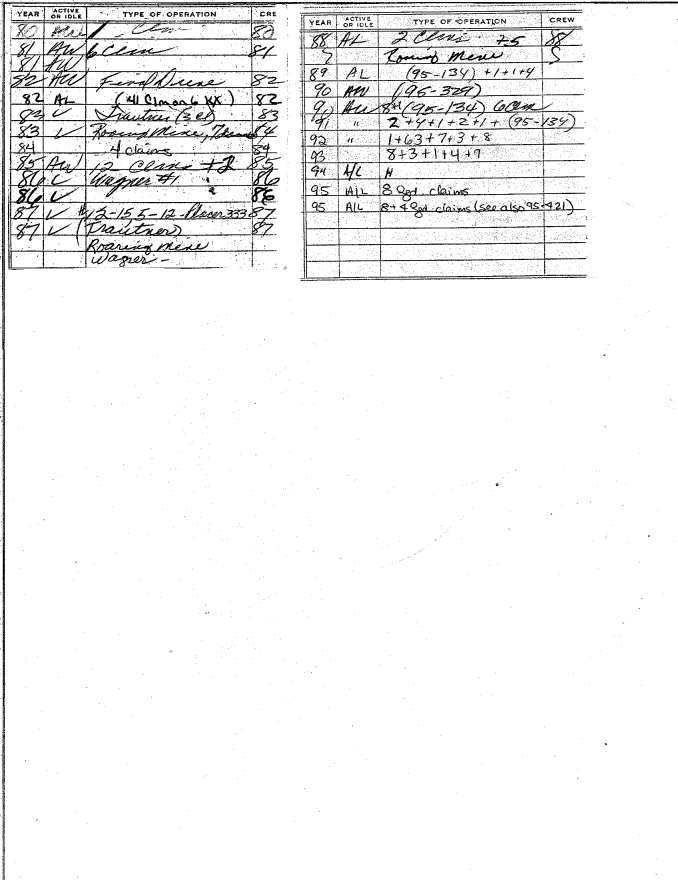 YEAR ACTIVE OR IDLE TYPE OF OPERATION CRE
80 1 Clm 80
81 AW 6 Clm 81
81 AW
82 AW 82
82 AL (41 Clm on 6 KX) 82
83 ✓ Trautner (3 cl) 83
83 ✓ Roaring Mine, 84
84 4 claims 84
85 AW 12 Clms + 2 85
86 Wagner #1 " 86
86 ✓ " 86
87 ✓ #12-15, 5-12-Placer 333 87
87 ✓ (Trautner) 87
Roaring Mine
Wagner -
YEAR ACTIVE OR IDLE TYPE OF OPERATION CREW
88 AL 2 Clms 75 88
Roaring Mine
89 AL (95-134) +1+1+4
90 AW (95-329)
90 AW 8+(95-134) 6 Clm
91 " 2+4+1+2+1+ (95-134)
92 " 1+63+7+3+8
93 8+3+1+4+9
94 A/L H
95 A/L 8 lgd. claims
95 A/L 8+4 lgd. claims (see also 95-421)